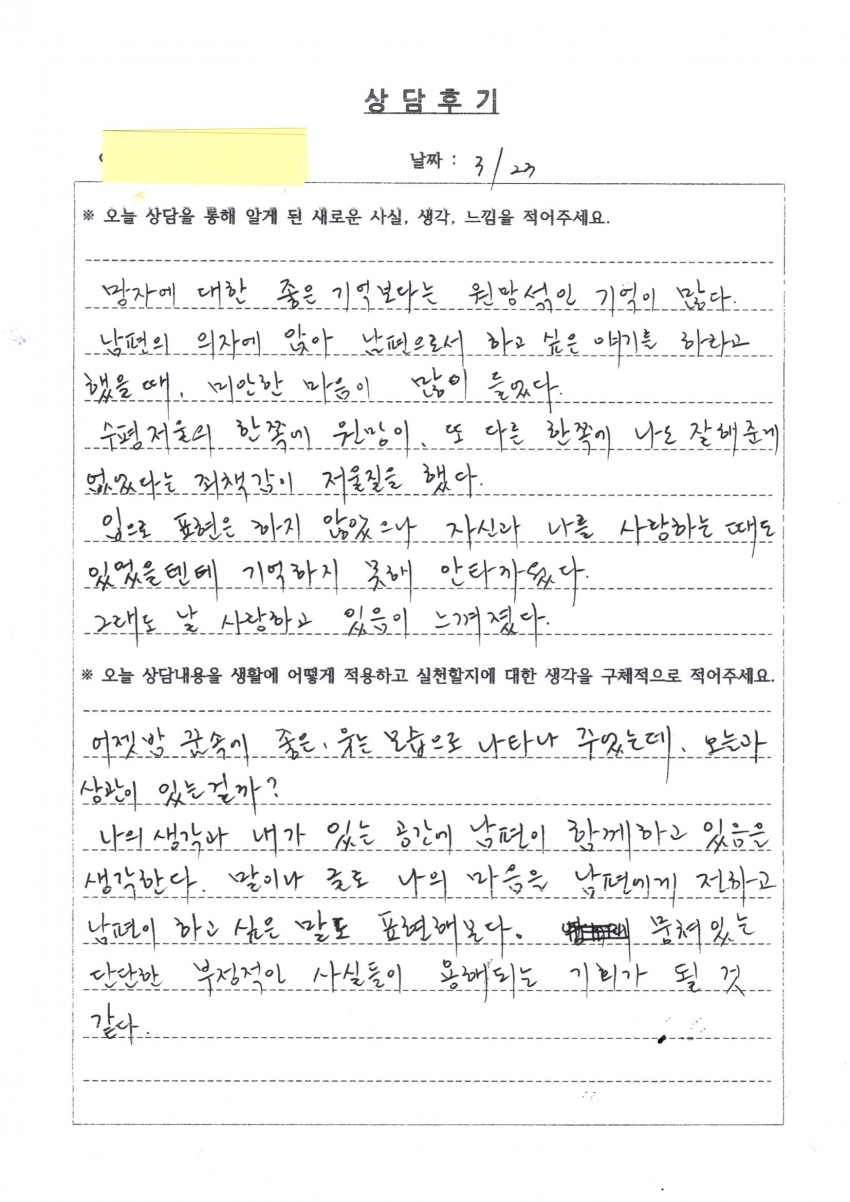 상 담 후 기
날짜 : 3/23
※ 오늘 상담을 통해 알게 된 새로운 사실, 생각, 느낌을 적어주세요.
망자에 대한 좋은 기억보다는 원망섞인 기억이 많다.
남편의 의자에 앉아 남편으로서 하고 싶은 얘기를 하라고
했을때, 미안한 마음이 많이 들었다.
수평저울의 한쪽에 원망이, 또 다른 한쪽에 나도 잘해준게
없었다는 죄책감이 저울질을 했다.
입으로 표현은 하지 않았으나 자신과 나를 사랑하는 때도
있었을텐테 기억하지 못해 안타까웠다.
그래도 날 사랑하고 있음이 느껴졌다.
※ 오늘 상담내용을 생활에 어떻게 적용하고 실천할지에 대한 생각을 구체적으로 적어주세요.
어젯밤 꿈속에 좋은, 웃는 모습으로 나타나 주었는데, 오늘과
상관이 있는걸까?
나의 생각과 내가 있는 공간에 남편이 함께하고 있음을
생각한다. 말이나 글로 나의 마음을 남편에게 전하고
남편이 하고 싶은 말도 표현해본다. 뭉쳐있는
단단한 부정적인 사실들이 용해되는 기회가 될 것
같다.